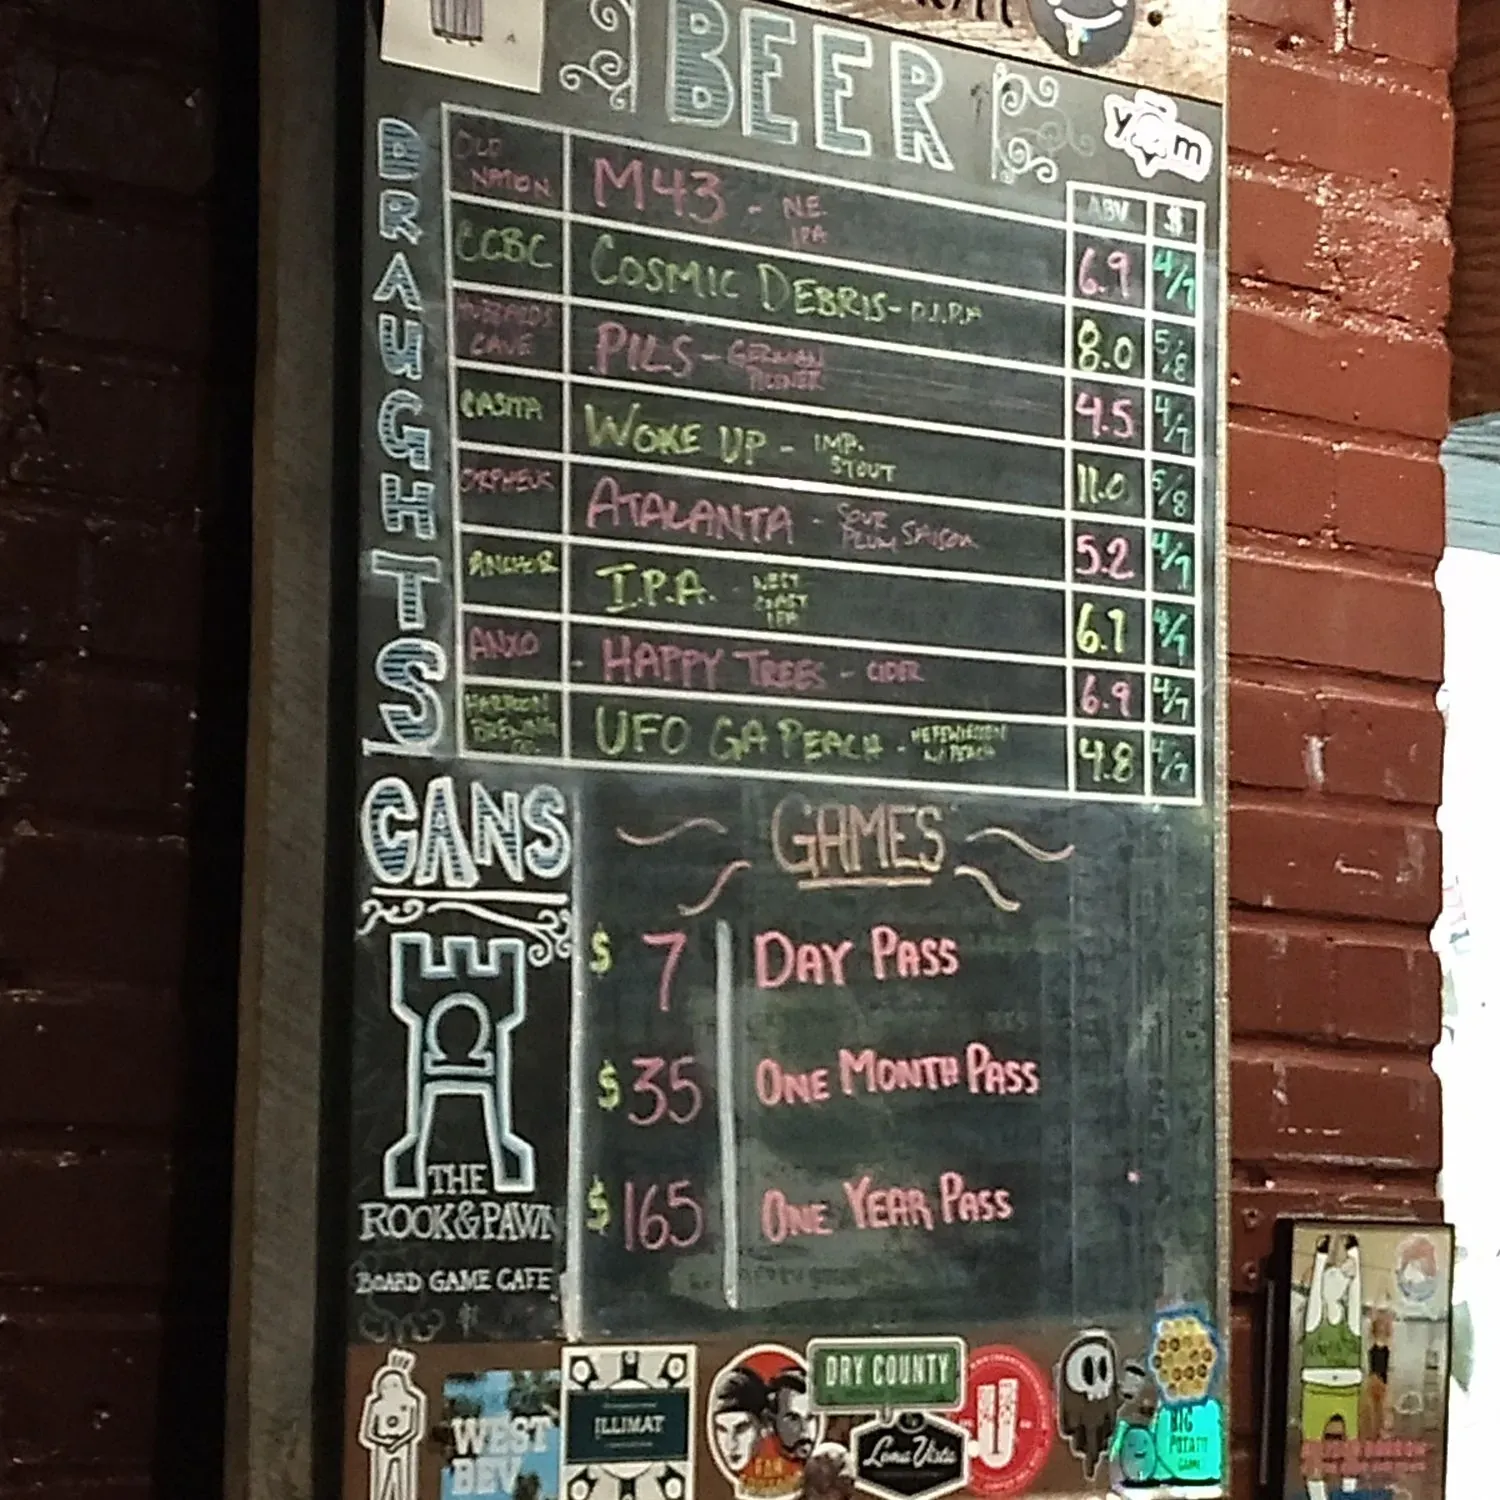 BEER
yum
DRAUGHTS
ABV $
OLD NATION M43 - N.E. IPA 6.9 4/7
CCBC COSMIC DEBRIS - D.I.P.A 8.0 5/8
CAVE PILS - GERMAN PILSNER 4.5 4/7
CASITA WOKE UP - IMP. STOUT 11.0 5/8
ORPHEUS ATALANTA - SOUR PLUM SAISON 5.2 4/7
ANCHOR I.P.A. - WEST COAST IPA 6.7 4/7
ANXO - HAPPY TREES - CIDER 6.9 4/7
BREWING CO. UFO GA PEACH - HEFEWEIZEN W/ PEACH 4.8 4/7
CANS
GAMES
$ 7 DAY PASS
$ 35 ONE MONTH PASS
$ 165 ONE YEAR PASS
THE
ROOK&PAWN
BOARD GAME CAFE
DRY COUNTY
WEST
BEV
ILLIMAT
U
Loma Vista
BIG
POTATO
GAMES